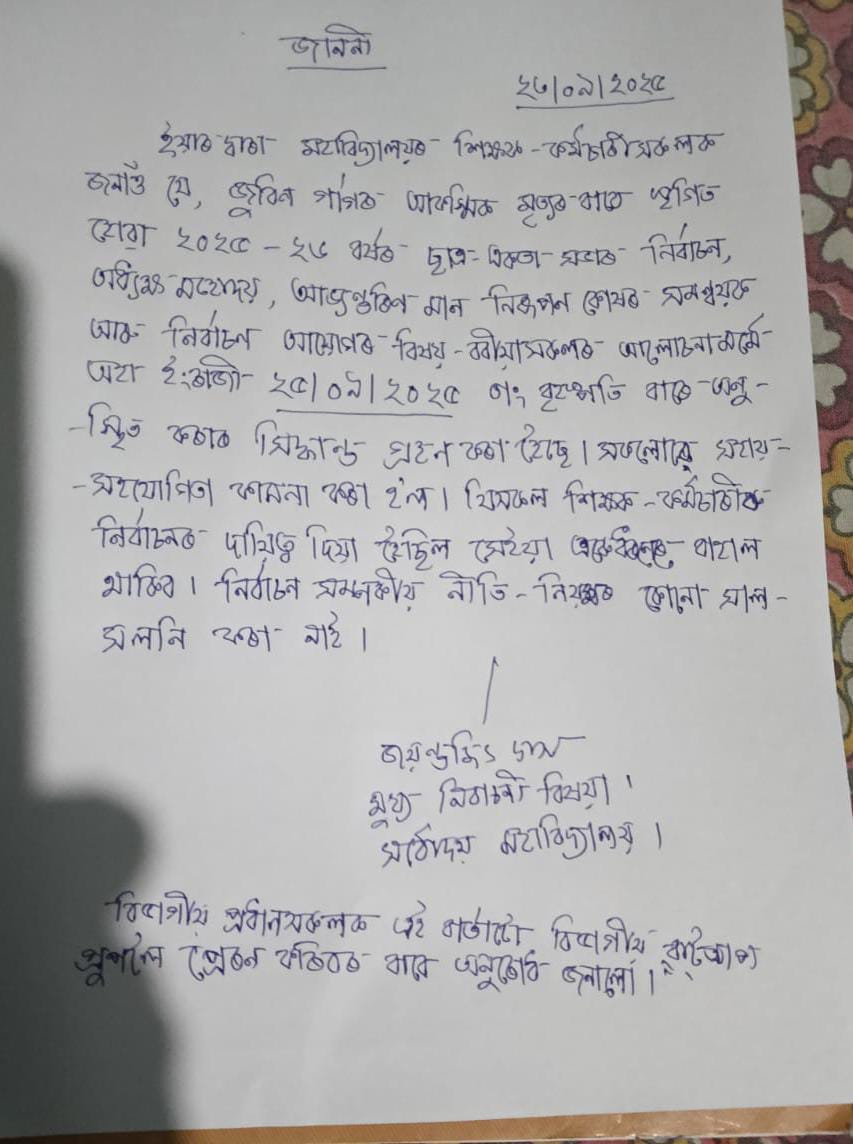 জাননী
২৩/০৯/২০২৫
ইয়াৰ দ্বাৰা মহাবিদ্যালয়ৰ শিক্ষক - কৰ্মচাৰীসকলক
জনাওঁ যে, জুবিন গাৰ্গৰ আকস্মিক মৃত্যুৰ বাবে স্থগিত
হোৱা ২০২৫ - ২৬ বৰ্ষৰ ছাত্ৰ - একতা সভাৰ নিৰ্বাচন,
অধ্যক্ষ মহোদয়, আভ্যন্তৰিণ মান নিৰূপন কোষৰ সমন্বয়ক
আৰু নিৰ্বাচন আয়োগৰ বিষয় - ববীয়াসকলৰ আলোচনা মৰ্মে
অহা ইংৰাজী ২৫/০৯/২০২৫ তাং বৃহস্পতি বাৰে অনু -
- স্থিত কৰাৰ সিদ্ধান্ত গ্ৰহন কৰা হৈছে। সকলোৰে সহায় -
- সহযোগিতা কামনা কৰা হ'ল। যিসকল শিক্ষক - কৰ্মচাৰীক
নিৰ্বাচনৰ দায়িত্ব দিয়া হৈছিল সেইয়া একেধৰণেৰে বাহাল
থাকিব। নিৰ্বাচন সম্পৰ্কীয় নীতি - নিয়মৰ কোনো সাল -
সলনি কৰা নাই।
জয়ন্তজিৎ দাস
মুখ্য নিৰ্বাচনী বিষয়া।
সৰ্বোদয় মহাবিদ্যালয়।
বিভাগীয় প্ৰধানসকলক এই বাৰ্তাটো বিভাগীয় হোৱাটছএপ
গ্ৰুপলৈ প্ৰেৰন কৰিবৰ বাবে অনুৰোধ জনালোঁ।